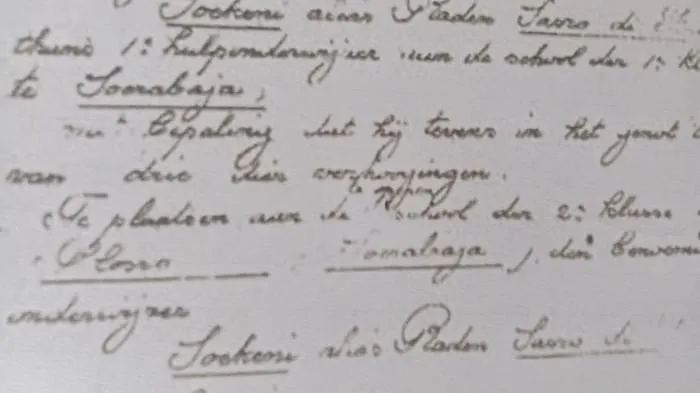 Soekeni alias Raden Sosro di
thans 1e hulponderwijzer aan de school der 1e kl
te Soerabaja,
met bepaling dat hij tevens in het genot
van drie dier verhoogingen.
Te plaatsen aan de school der 2e klasse
Soerabaja, den
onderwijzer
Soekeni alias Raden Sosro di